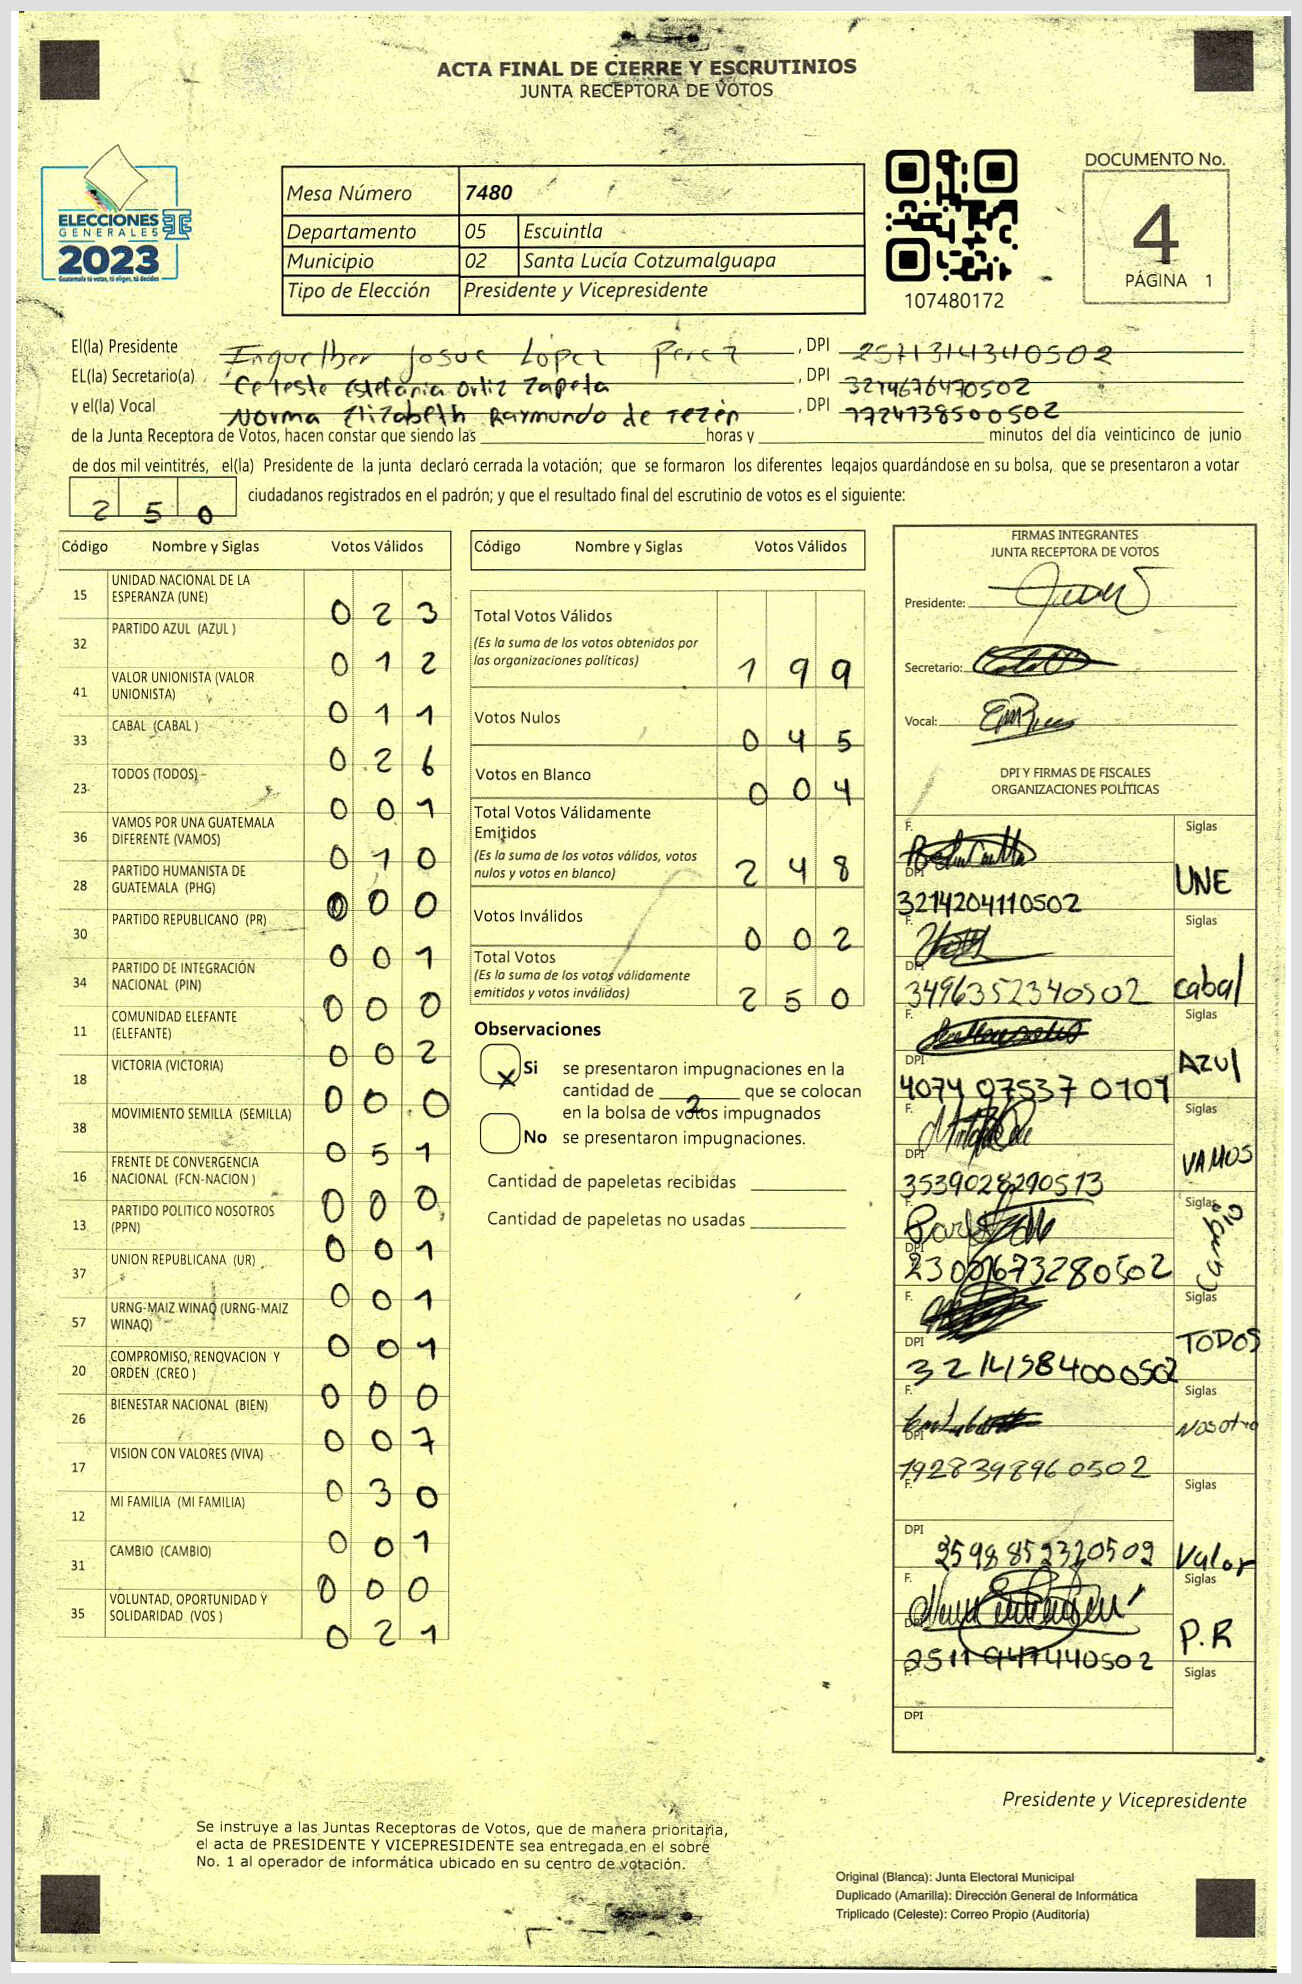 ACTA FINAL DE CIERRE Y ESCRUTINIOS
JUNTA RECEPTORA DE VOTOS
ELECCIONES
GENERALES
2023
Guatemala tú votas, tú eliges, tú decides
Mesa Número 7480
Departamento 05 Escuintla
Municipio 02 Santa Lucía Cotzumalguapa
Tipo de Elección Presidente y Vicepresidente
107480172
DOCUMENTO No.
4
PÁGINA 1
El(la) Presidente Inguelber Josue López Perez, DPI 2571314340502
EL(la) Secretario(a) Celeste Estefania Ortiz Zapeta, DPI 3214676470502
y el(la) Vocal Norma Elizabeth Raymundo de Tezén, DPI 1724738500502
de la Junta Receptora de Votos, hacen constar que siendo las horas y minutos del día veinticinco de junio
de dos mil veintitrés, el(la) Presidente de la junta declaró cerrada la votación; que se formaron los diferentes legajos guardándose en su bolsa, que se presentaron a votar
250 ciudadanos registrados en el padrón; y que el resultado final del escrutinio de votos es el siguiente:
Código Nombre y Siglas Votos Válidos
15 UNIDAD NACIONAL DE LA ESPERANZA (UNE) 023
32 PARTIDO AZUL (AZUL ) 012
41 VALOR UNIONISTA (VALOR UNIONISTA) 011
33 CABAL (CABAL ) 026
23 TODOS (TODOS) 001
36 VAMOS POR UNA GUATEMALA DIFERENTE (VAMOS) 010
28 PARTIDO HUMANISTA DE GUATEMALA (PHG) 000
30 PARTIDO REPUBLICANO (PR) 001
34 PARTIDO DE INTEGRACIÓN NACIONAL (PIN) 000
11 COMUNIDAD ELEFANTE (ELEFANTE) 002
18 VICTORIA (VICTORIA) 000
38 MOVIMIENTO SEMILLA (SEMILLA) 051
16 FRENTE DE CONVERGENCIA NACIONAL (FCN-NACION ) 000
13 PARTIDO POLITICO NOSOTROS (PPN) 001
37 UNION REPUBLICANA (UR) 001
57 URNG-MAIZ WINAQ (URNG-MAIZ WINAQ) 001
20 COMPROMISO, RENOVACION Y ORDEN (CREO ) 000
26 BIENESTAR NACIONAL (BIEN) 007
17 VISION CON VALORES (VIVA) 030
12 MI FAMILIA (MI FAMILIA) 001
31 CAMBIO (CAMBIO) 000
35 VOLUNTAD, OPORTUNIDAD Y SOLIDARIDAD (VOS ) 021
Código Nombre y Siglas Votos Válidos
Total Votos Válidos 199
(Es la suma de los votos obtenidos por
las organizaciones políticas)
Votos Nulos 045
Votos en Blanco 004
Total Votos Válidamente
Emitidos 248
(Es la suma de los votos válidos, votos
nulos y votos en blanco)
Votos Inválidos 002
Total Votos 250
(Es la suma de los votos válidamente
emitidos y votos inválidos)
Observaciones
X Si se presentaron impugnaciones en la
cantidad de 2 que se colocan
en la bolsa de votos impugnados
No se presentaron impugnaciones.
Cantidad de papeletas recibidas
Cantidad de papeletas no usadas
FIRMAS INTEGRANTES
JUNTA RECEPTORA DE VOTOS
Presidente:
Secretario:
Vocal:
DPI Y FIRMAS DE FISCALES
ORGANIZACIONES POLÍTICAS
F. Siglas
DPI 3214204110502 UNE
F. Siglas
DPI 3496352340502 Cabal
F. Siglas
DPI 4074 07537 0101 AZUL
F. Siglas
DPI 3539028290513 VAMOS
F. Siglas
DPI Cambio
F. Siglas
DPI 3214584000502 TODOS
F. Siglas
DPI 1928398960502 Nosotro
F. Siglas
DPI 2598852320502 Valor
F. Siglas
DPI 2511947440502 P.R
F. Siglas
DPI
Presidente y Vicepresidente
Se instruye a las Juntas Receptoras de Votos, que de manera prioritaria,
el acta de PRESIDENTE Y VICEPRESIDENTE sea entregada en el sobre
No. 1 al operador de informática ubicado en su centro de votación.
Original (Blanca): Junta Electoral Municipal
Duplicado (Amarilla): Dirección General de Informática
Triplicado (Celeste): Correo Propio (Auditoría)